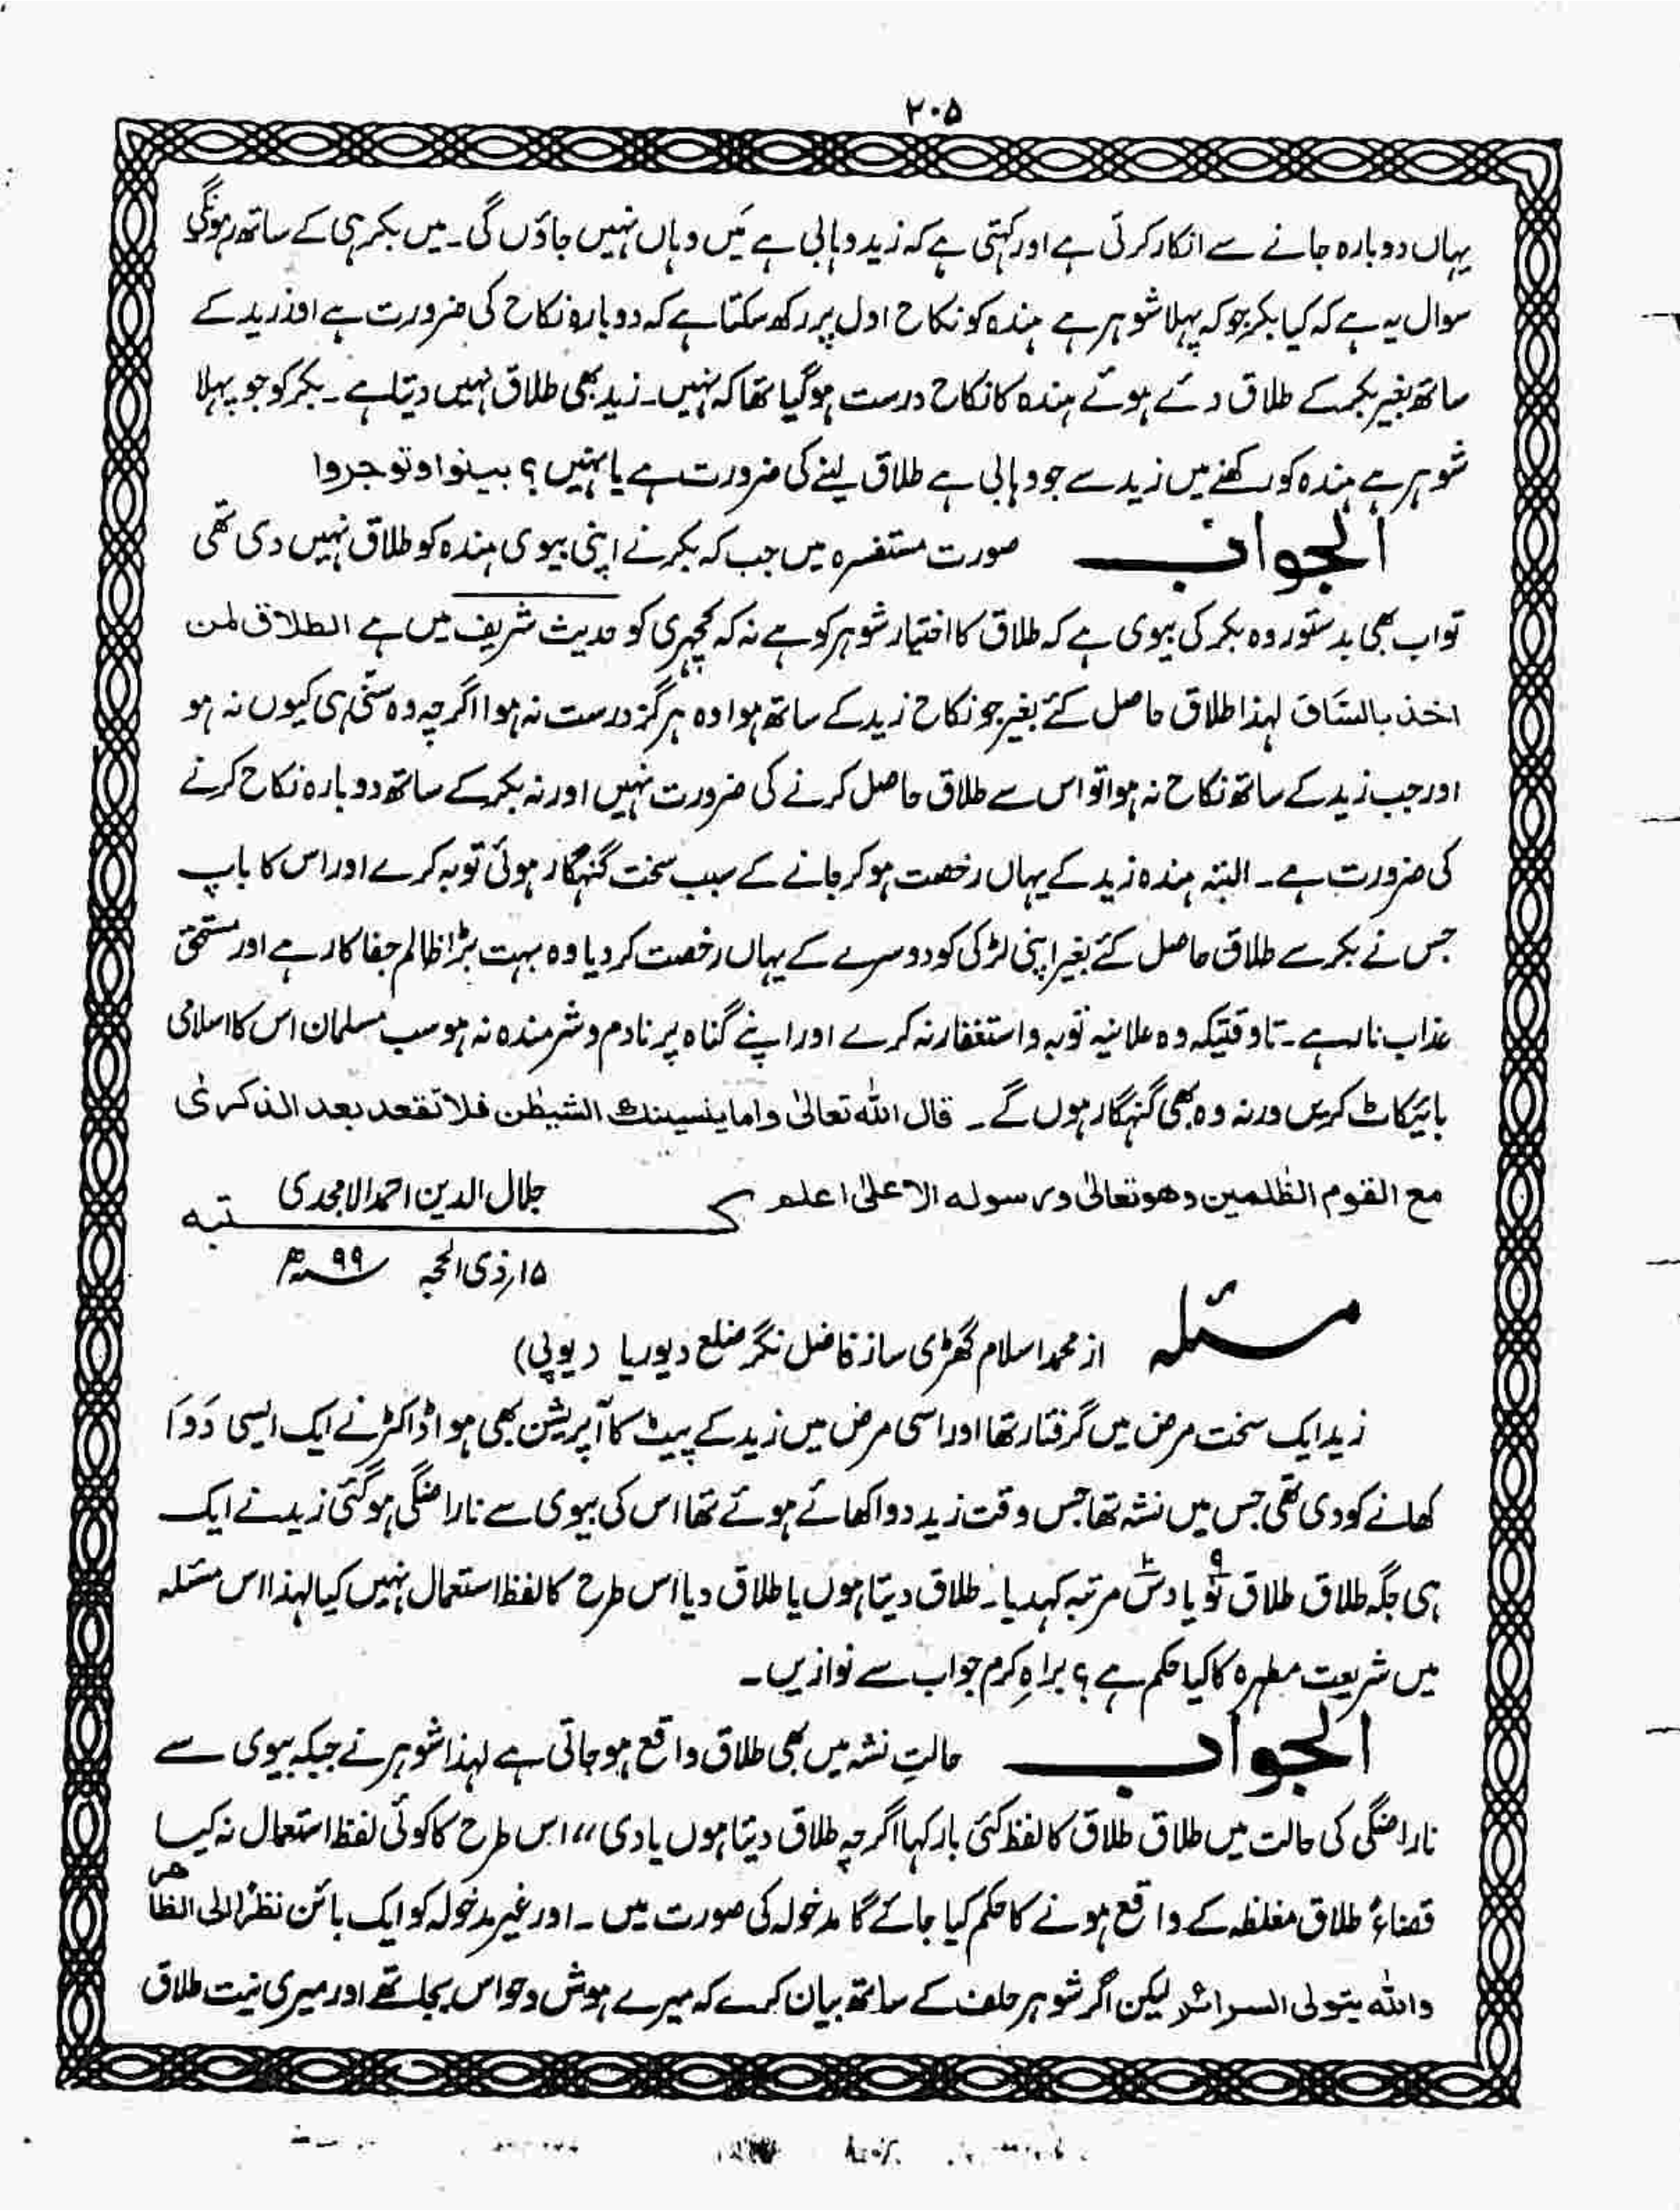 ۲۰۵
یہاں دوبارہ جانے سے انکار کرتی ہے اور کہتی ہے کہ زید وہابی ہے میَں وہاں نہیں جاؤں گی۔ میں بکر ہی کے ساتھ رہونگی
سوال یہ ہے کہ کیا بکر جو کہ پہلا شوہر ہے ہندہ کو نکاح اول پر رکھ سکتا ہے کہ دوبارہ نکاح کی ضرورت ہے اور زید کے
ساتھ بغیر بکر کے طلاق دئے ہوئے ہندہ کا نکاح درست ہوگیا تھا کہ نہیں۔ زید بھی طلاق نہیں دیتا ہے۔ بکر کو جو پہلا
شوہر ہے ہندہ کو رکھنے میں زید سے جو وہابی ہے طلاق لینے کی ضرورت ہے یا نہیں؟ بینوا وتوجروا
الجواب صورت مستفسرہ میں جب کہ بکر نے اپنی بیوی ہندہ کو طلاق نہیں دی تھی
تو اب بھی بدستور وہ بکر کی بیوی ہے کہ طلاق کا اختیار شوہر کو ہے نہ کہ کچہری کو حدیث شریف میں ہے الطلاق لمن
اخذ بالساق لہذا طلاق حاصل کئے بغیر جو نکاح زید کے ساتھ ہوا وہ ہرگز درست نہ ہوا اگرچہ وہ سنّی ہی کیوں نہ ہو
اور جب زید کے ساتھ نکاح نہ ہوا تو اس سے طلاق حاصل کرنے کی ضرورت نہیں اور نہ بکر کے ساتھ دوبارہ نکاح کرنے
کی ضرورت ہے۔ البتہ ہندہ زید کے یہاں رخصت ہوکر جانے کے سبب سخت گنہگار ہوئی توبہ کرے اور اس کا باپ
جس نے بکر سے طلاق حاصل کئے بغیر اپنی لڑکی کو دوسرے کے یہاں رخصت کردیا وہ بہت بڑا ظالم جفاکار ہے اور مستحق
عذاب نار ہے۔ تاوقتیکہ وہ علانیہ توبہ واستغفار نہ کرے اور اپنے گناہ پر نادم وشرمندہ نہ ہو سب مسلمان اس کا اسلامی
بائیکاٹ کریں ورنہ وہ بھی گنہگار ہوں گے۔ قال اللہ تعالیٰ واما ینسینک الشیطٰن فلا تقعد بعد الذکریٰ
مع القوم الظٰلمین وھو تعالیٰ ورسولہ الاعلیٰ اعلم کتبہ جلال الدین احمد الامجدی
۱۵؍ ذی الحجہ ۹۹ھ
مسئلہ از محمد اسلام گھڑی ساز فاضل نگر ضلع دیوریا (یوپی)
زید ایک سخت مرض میں گرفتار تھا اور اسی مرض میں زید کے پیٹ کا آپریشن بھی ہوا ڈاکٹر نے ایک ایسی دَوَا
کھانے کو دی تھی جس میں نشہ تھا جس وقت زید دوا کھائے ہوئے تھا اس کی بیوی سے ناراضگی ہوگئی زید نے ایک
ہی جگہ طلاق طلاق نو۹ یا دس۱۰ مرتبہ کہدیا۔ طلاق دیتا ہوں یا طلاق دیا اس طرح کا لفظ استعمال نہیں کیا لہذا اس مسئلہ
میں شریعت مطہرہ کا کیا حکم ہے؟ براہِ کرم جواب سے نوازیں۔
الجواب حالتِ نشہ میں بھی طلاق واقع ہوجاتی ہے لہذا شوہر نے جبکہ بیوی سے
ناراضگی کی حالت میں طلاق طلاق کا لفظ کئی بار کہا اگرچہ طلاق دیتا ہوں یا دی،، اس طرح کا کوئی لفظ استعمال نہ کیا
قضاءً طلاق مغلظہ کے واقع ہونے کا حکم کیا جائے گا مدخولہ کی صورت میں۔ اور غیر مدخولہ کو ایک بائن نظرًا الی الظاھر
واللہ یتولی السرائر لیکن اگر شوہر حلف کے ساتھ بیان کرے کہ میرے ہوش وحواس بجا تھے اور میری نیت طلاق